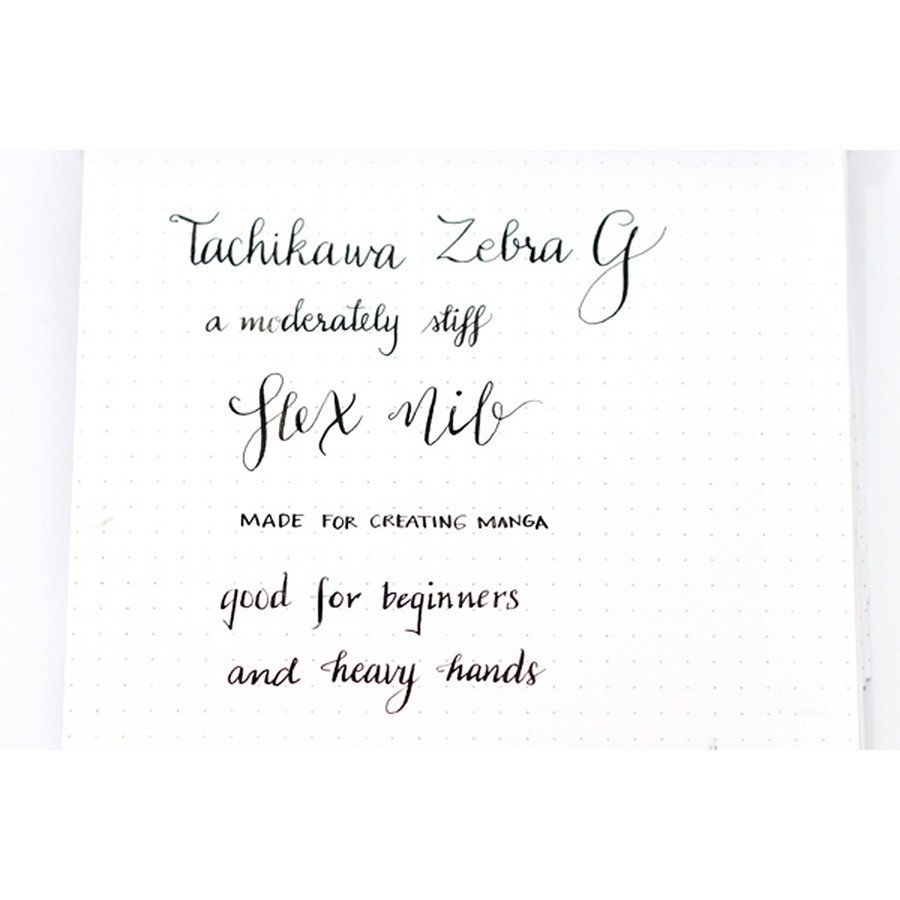 Tachikawa Zebra G
a moderately stiff
flex nib
MADE FOR CREATING MANGA
good for beginners
and heavy hands